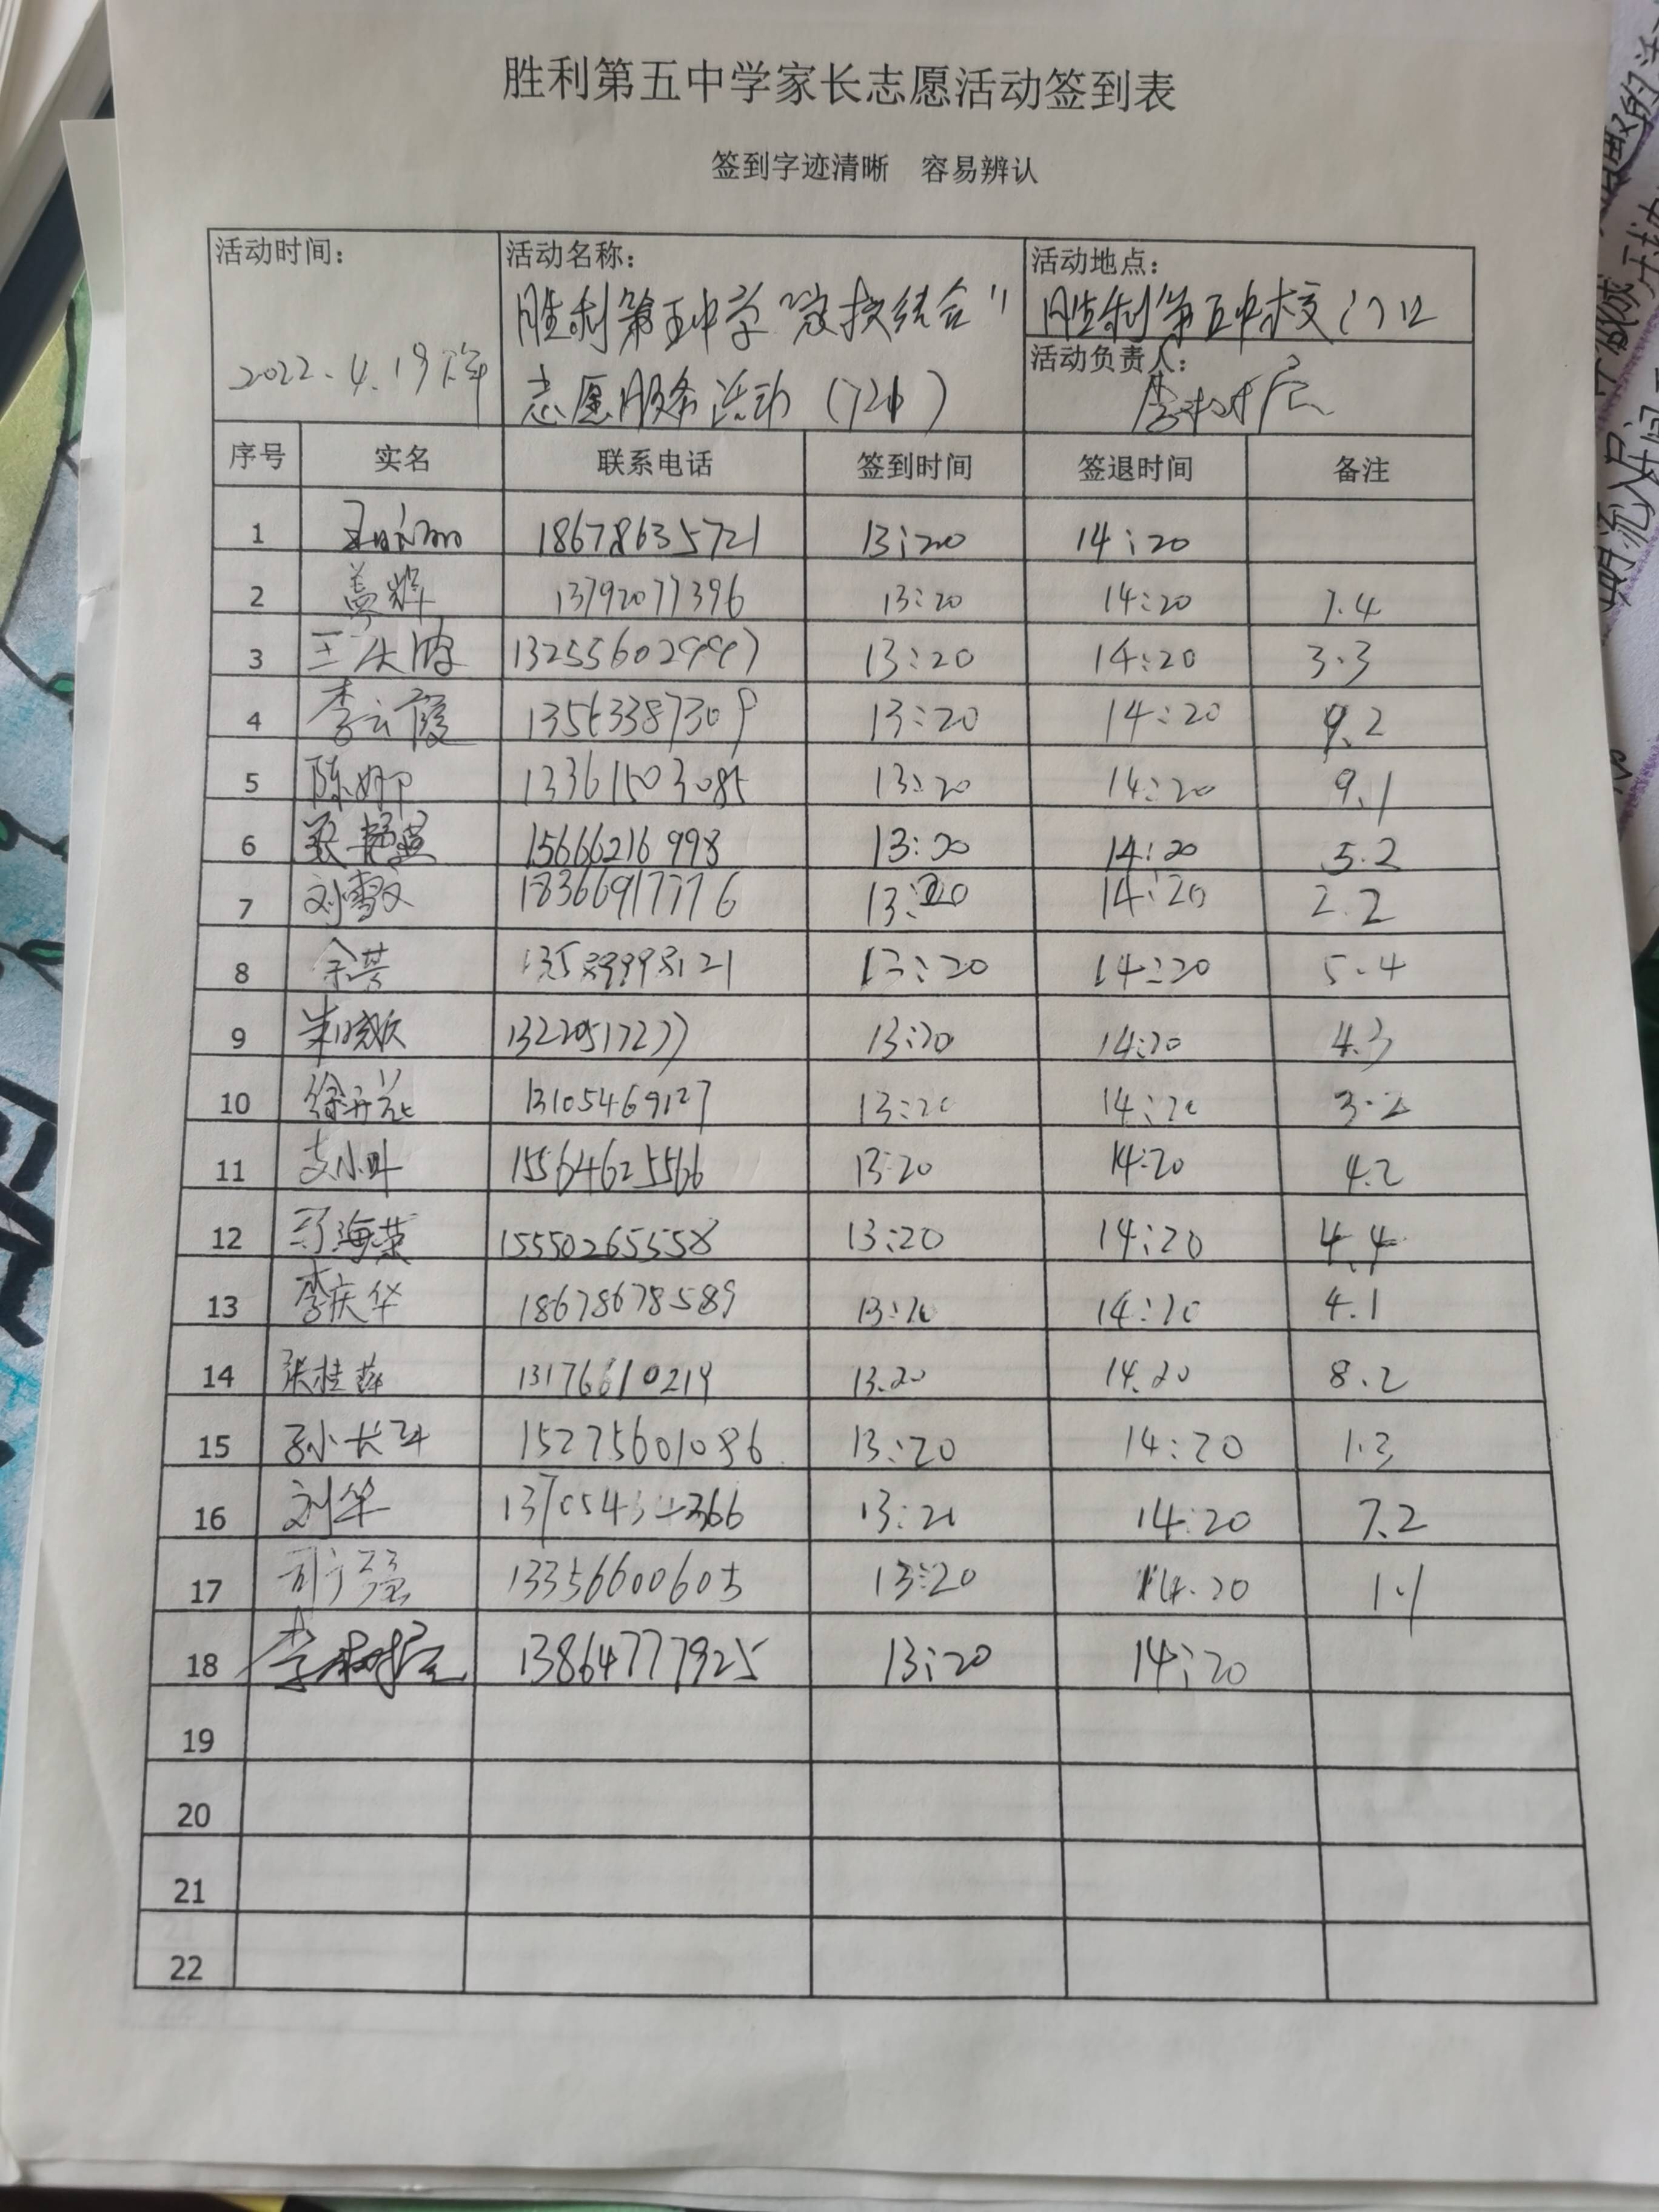 胜利第五中学家长志愿活动签到表
签到字迹清晰 容易辨认
活动时间: 2022.4.19下午
活动名称: 胜利第五中学"家校结合"
志愿服务活动
活动地点: 胜利第五中校门口
活动负责人:
序号 实名 联系电话 签到时间 签退时间 备注
1 18678635721 13:20 14:20
2 盖辉 13792077396 13:20 14:20 7.4
3 13255602997 13:20 14:20 3.3
4 李云霞 13563387309 13:20 14:20 9.2
5 陈娜 13361503085 13:20 14:20 9.1
6 15666216998 13:20 14:20 5.2
7 刘雪文 18366917776 13:20 14:20 2.2
8 余芸 13589998121 13:20 14:20 5.4
9 朱晓欣 13220517277 13:20 14:20 4.3
10 徐开花 13105469127 13:20 14:20 3.2
11 支小叶 15564625566 13:20 14:20 4.2
12 海荣 15550265558 13:20 14:20 4.4
13 李庆华 18678678589 13:20 14:20 4.1
14 张桂萍 13176610219 13.20 14.20 8.2
15 孙长江 15275601086 13:20 14:20 1.3
16 刘华 13:20 14:20 7.2
17 司广强 13356600605 13:20 14:20 1.1
18 13864777925 13:20 14:20
19
20
21
22